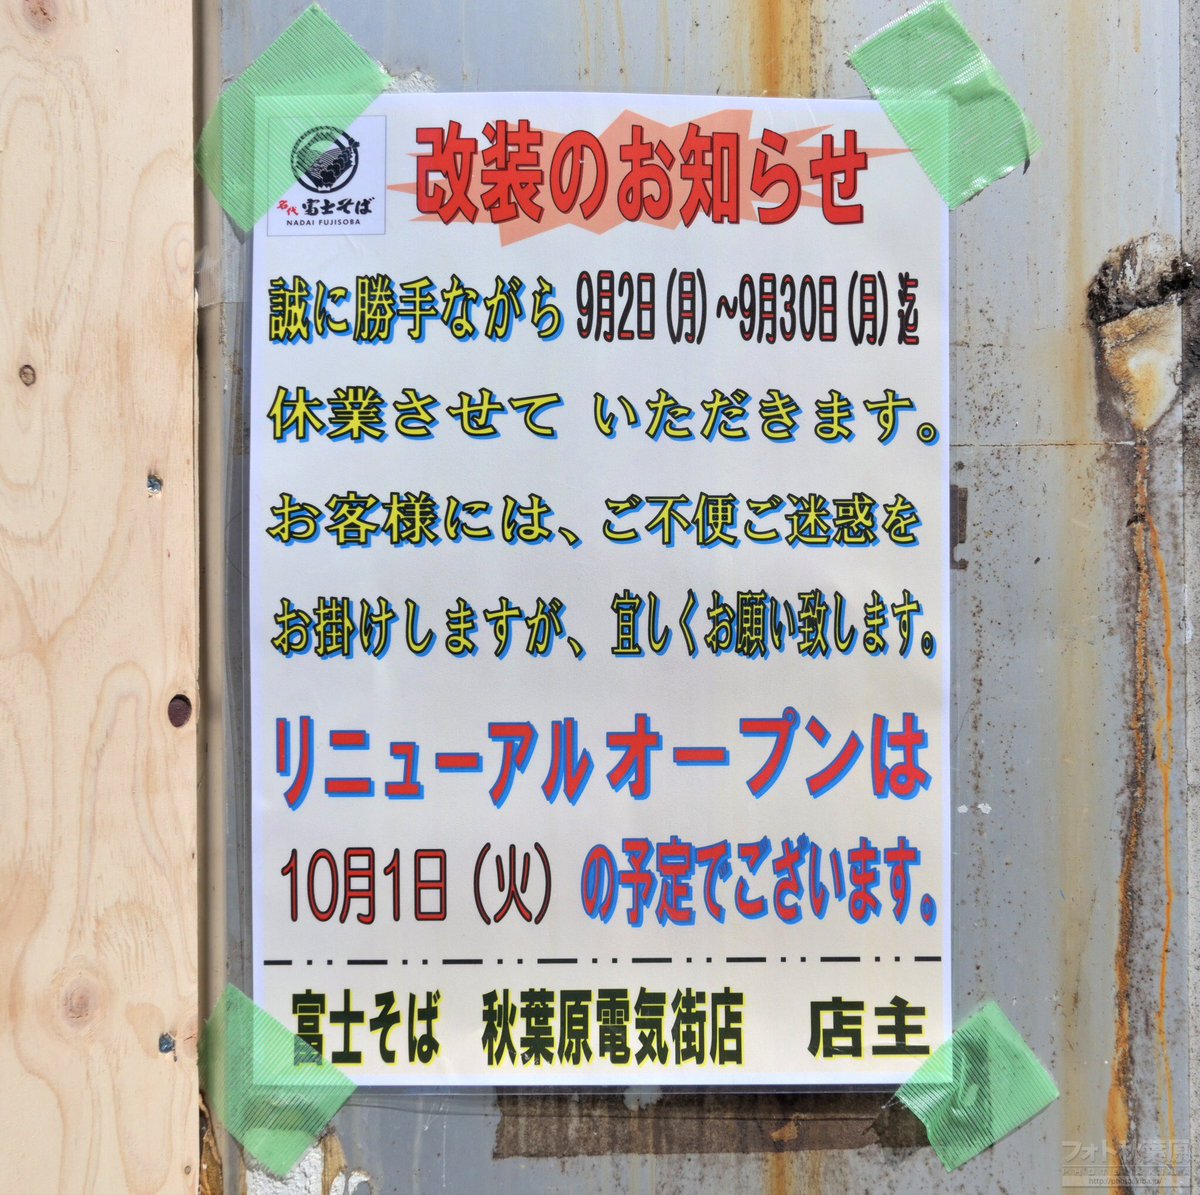 改装のお知らせ
名代 富士そば
NADAI FUJISOBA
誠に勝手ながら 9月2日(月)~9月30日(月)迄
休業させて いただきます。
お客様には、ご不便ご迷惑を
お掛けしますが、宜しくお願い致します。
リニューアルオープンは
10月1日(火)の予定でございます。
富士そば 秋葉原電気街店 店主
フォト秋葉原